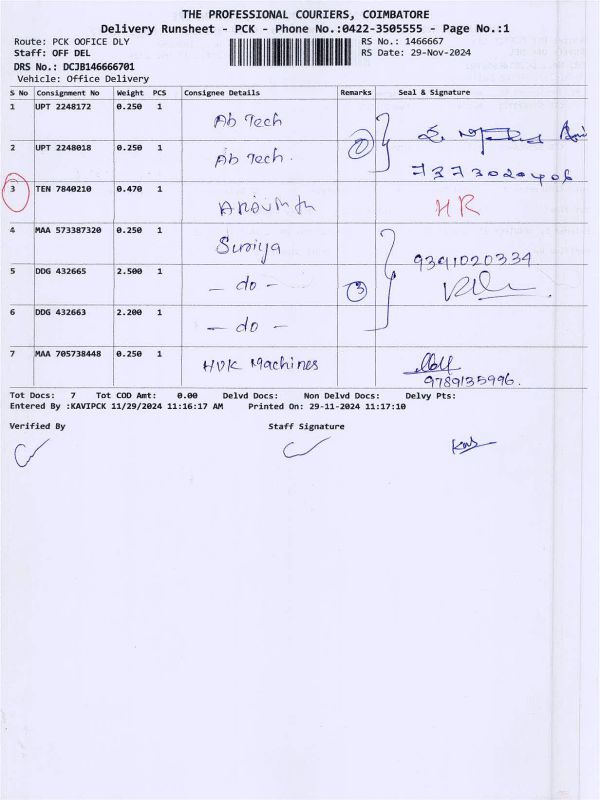 THE PROFESSIONAL COURIERS, COIMBATORE
Delivery Runsheet - PCK - Phone No.:0422-3505555 - Page No.:1
Route: PCK OOFICE DLY
RS No.: 1466667
Staff: OFF DEL
RS Date: 29-Nov-2024
DRS No.: DCJB146666701
Vehicle: Office Delivery
S No Consignment No Weight PCS Consignee Details Remarks Seal & Signature
1 UPT 2248172 0.250 1 Ab Tech
2 UPT 2248018 0.250 1 Ab Tech.
7373020406
3 TEN 7840210 0.470 1 HR
4 MAA 573387320 0.250 1 Suriya
9391020334
5 DDG 432665 2.500 1 - do - 3
6 DDG 432663 2.200 1 - do -
7 MAA 705738448 0.250 1 HVK Machines
9789135996.
Tot Docs: 7 Tot COD Amt: 0.00 Delvd Docs: Non Delvd Docs: Delvy Pts:
Entered By :KAVIPCK 11/29/2024 11:16:17 AM Printed On: 29-11-2024 11:17:10
Verified By Staff Signature